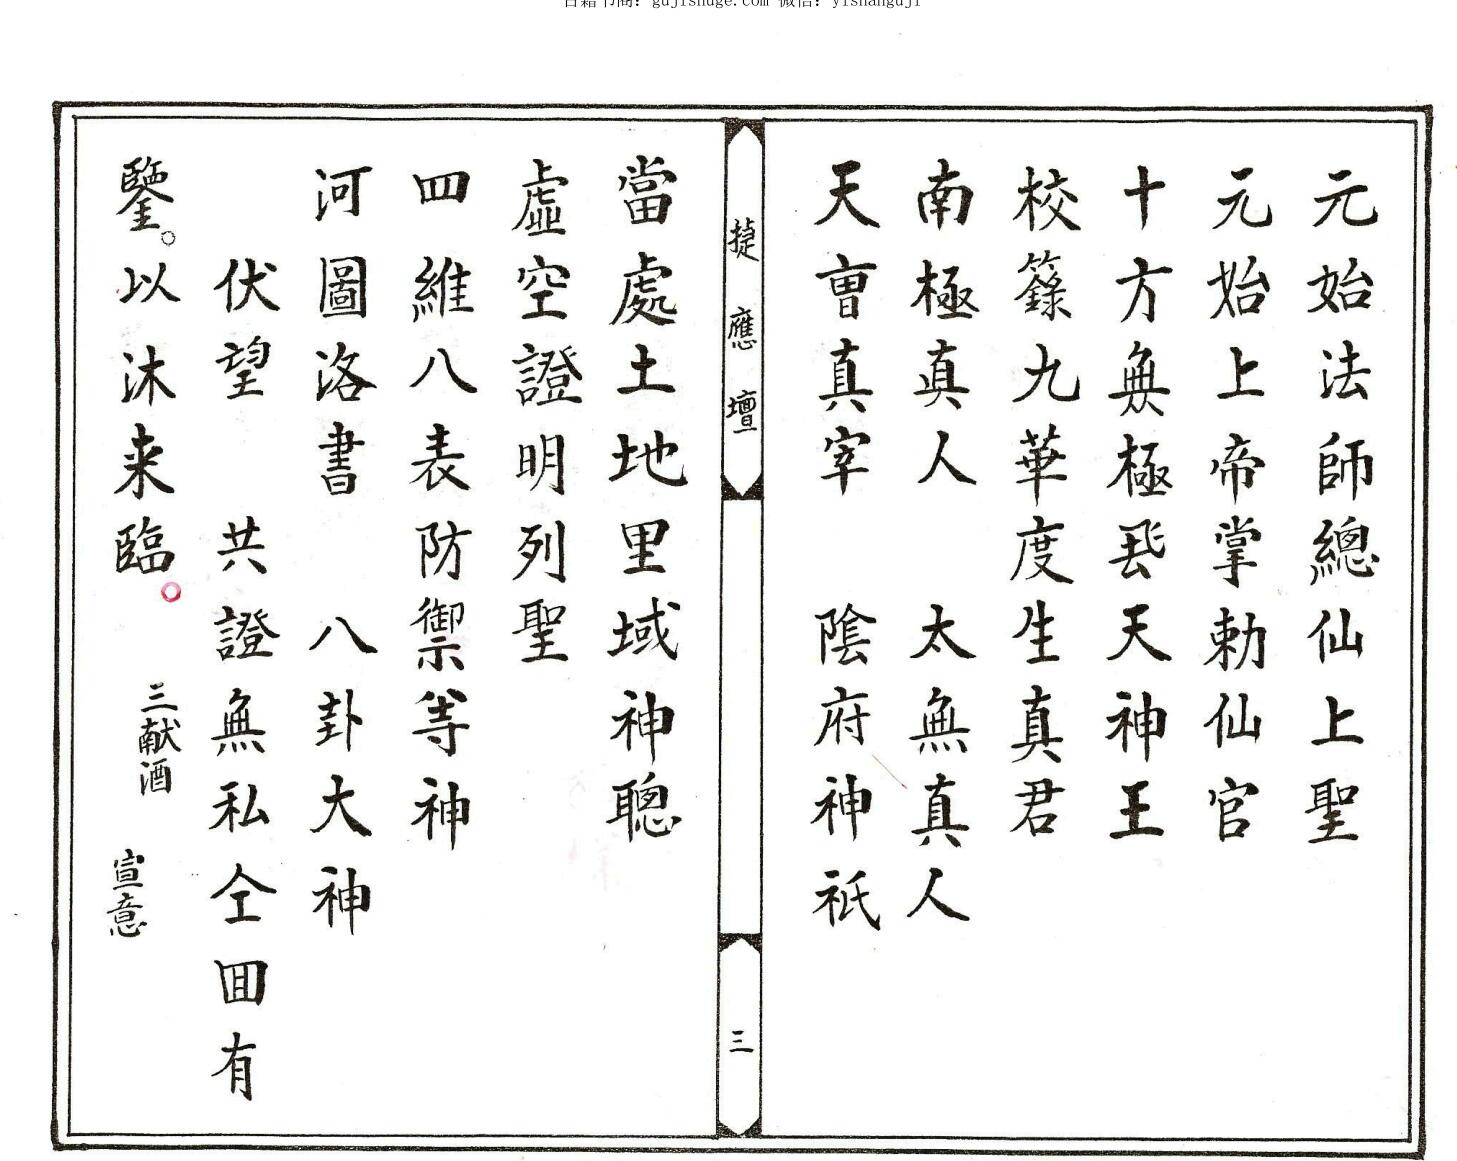 古籍书阁：gujishuge.com 微信：yishanguji
元始法師總仙上聖
元始上帝掌勅仙官
十方無極飛天神王
校籙九華度生真君
南極真人　太無真人
天曺真宰　陰府神祇
捷應壇
三
當處土地里域神聰
虛空證明列聖
四維八表防御禁等神
河圖洛書　八卦大神
伏望　共證無私仝囬有
鑒。以沐来臨。三献酒　宣意